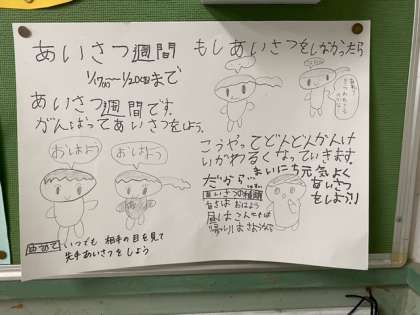 あいさつ週間
1/17㈫〜1/20㈮まで
あいさつ週間です。
がんばってあいさつをしよう。
おはよう
おはよう
いつでも 相手の目を見て
先手あいさつをしよう
もしあいさつをしなかったら
こうやってどんどんかんけ
いがわるくなっていきます。
だから…
まいにち元気よく
あいさつ
をしよう!
あいさつの種類
朝は おはよう
昼は こんにちは
帰りは さようなら